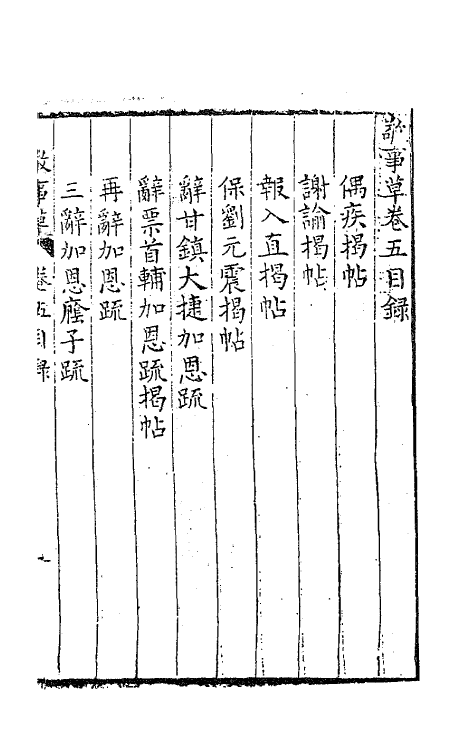 敬事草卷五目録
偶疾揭帖
謝諭揭帖
報入直揭帖
保劉元震揭帖
辭甘鎮大捷加恩疏
辭票首輔加恩疏揭帖
再辭加恩疏
三辭加恩廕子疏
敬事草 卷五目録 一